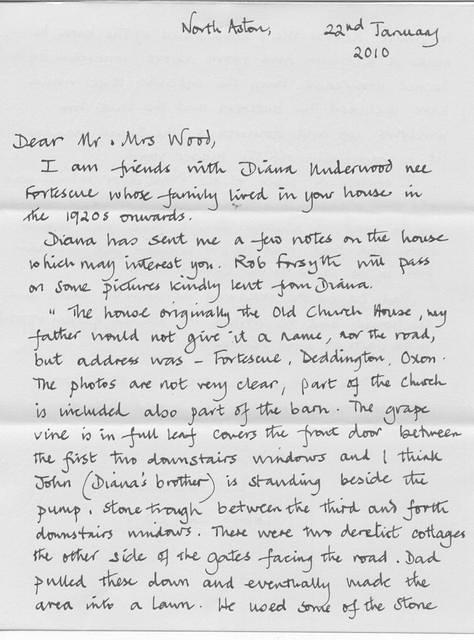 North Aston,
22nd January
2010
Dear Mr. Mrs Wood,
I am friends with Diana Underwood nee
Fortescue whose family lived in your house in
the 1920s onwards.
Diana has sent me a few notes on the house
which may interest you. Rob Forsyth will pass
on some pictures kindly lent from Diana.
" The house originally the Old Church House, my
father would not give it a name, nor the road,
but address was - Fortescue, Deddington, Oxon.
The photos are not very clear, part of the church
is included also part of the barn. The grape
vine is in full leaf covers the front door between
the first two downstairs windows and I think
John (Diana's brother) is standing beside the
pump. Stone trough between the third and forth
downstairs windows. There were two derelict cottages
the other side of the gates facing the road. Dad
pulled these down and eventually made the
area into a lawn. He used some of the stone